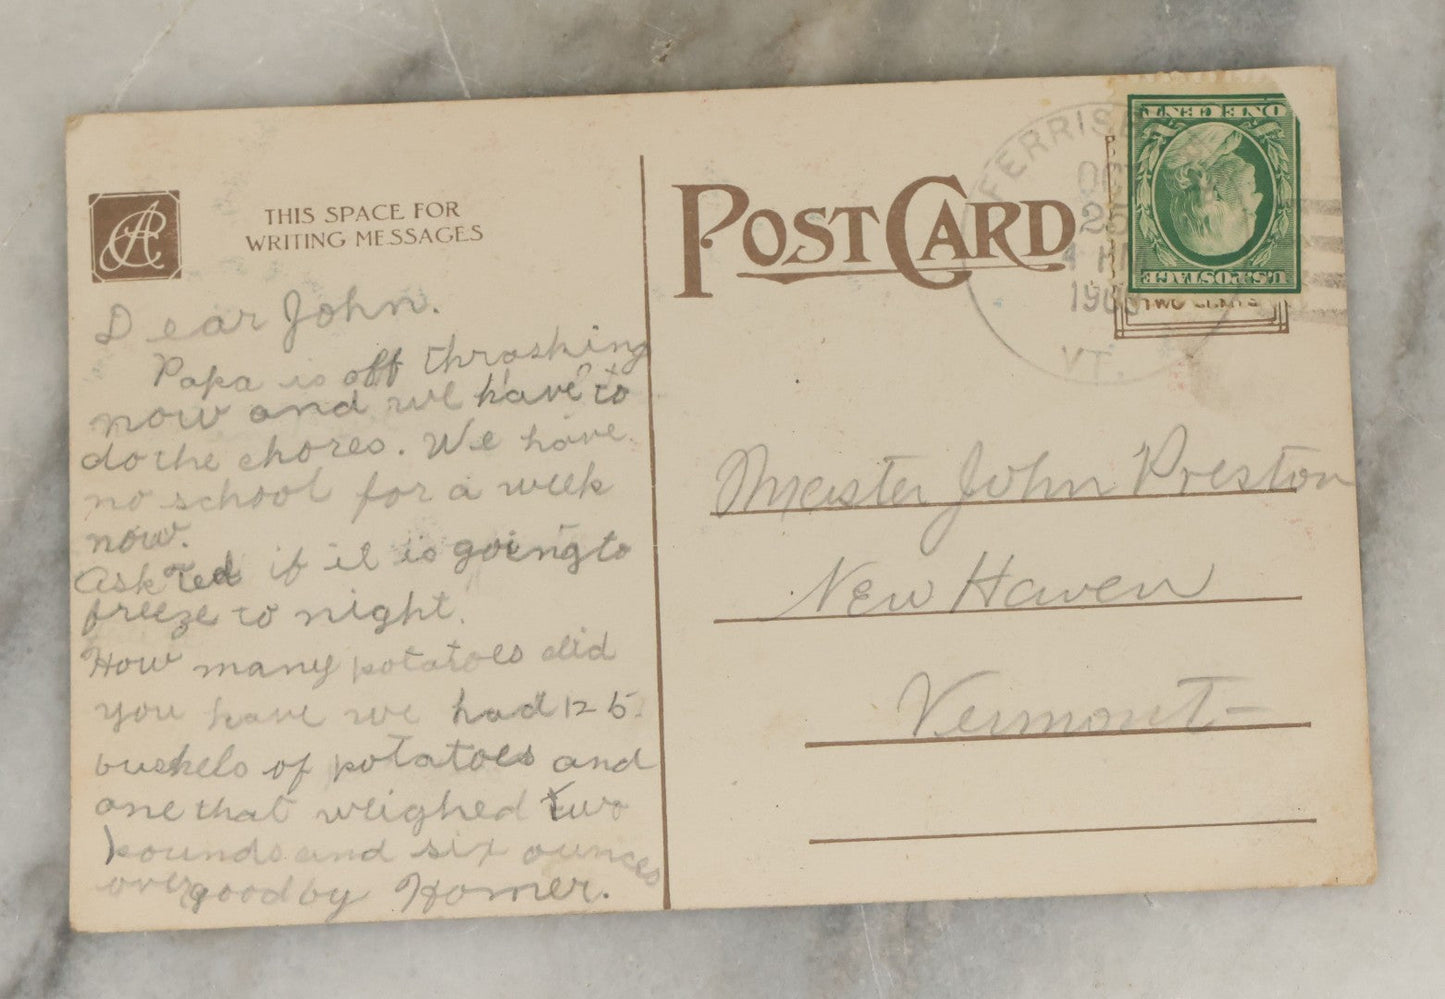 THIS SPACE FOR
WRITING MESSAGES
Dear John.
Papa is off thrashing
now and we have to
do the chores. We have
no school for a week
now.
Ask Ted if it is going to
freeze to night.
How many potatoes did
you have we had 125
bushels of potatoes and
one that weighed two
pounds and six ounces
over good by Homer.
POST CARD
OCT
25
4 PM
VT.
ONE CENT
U.S. POSTAGE
TWO CENTS
Meister John Preston
New Haven
Vermont